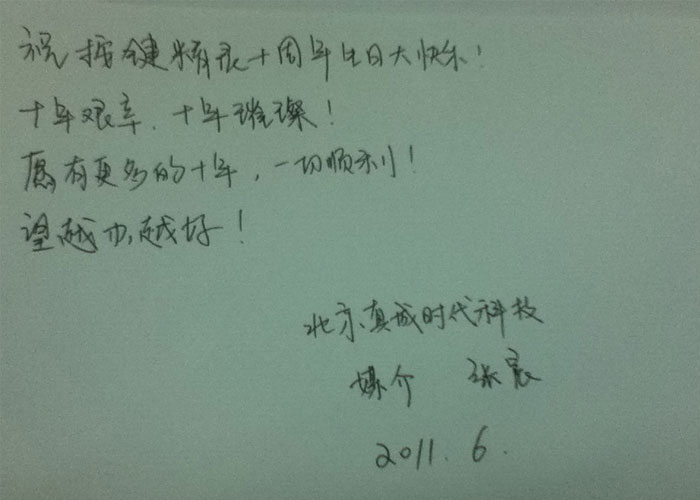 祝按键精灵十周年生日大快乐！
十年艰辛，十年璀璨！
愿有更多的十年，一切顺利！
望越办越好！
北京真诚时代科技
媒介 张宸
2011.6.